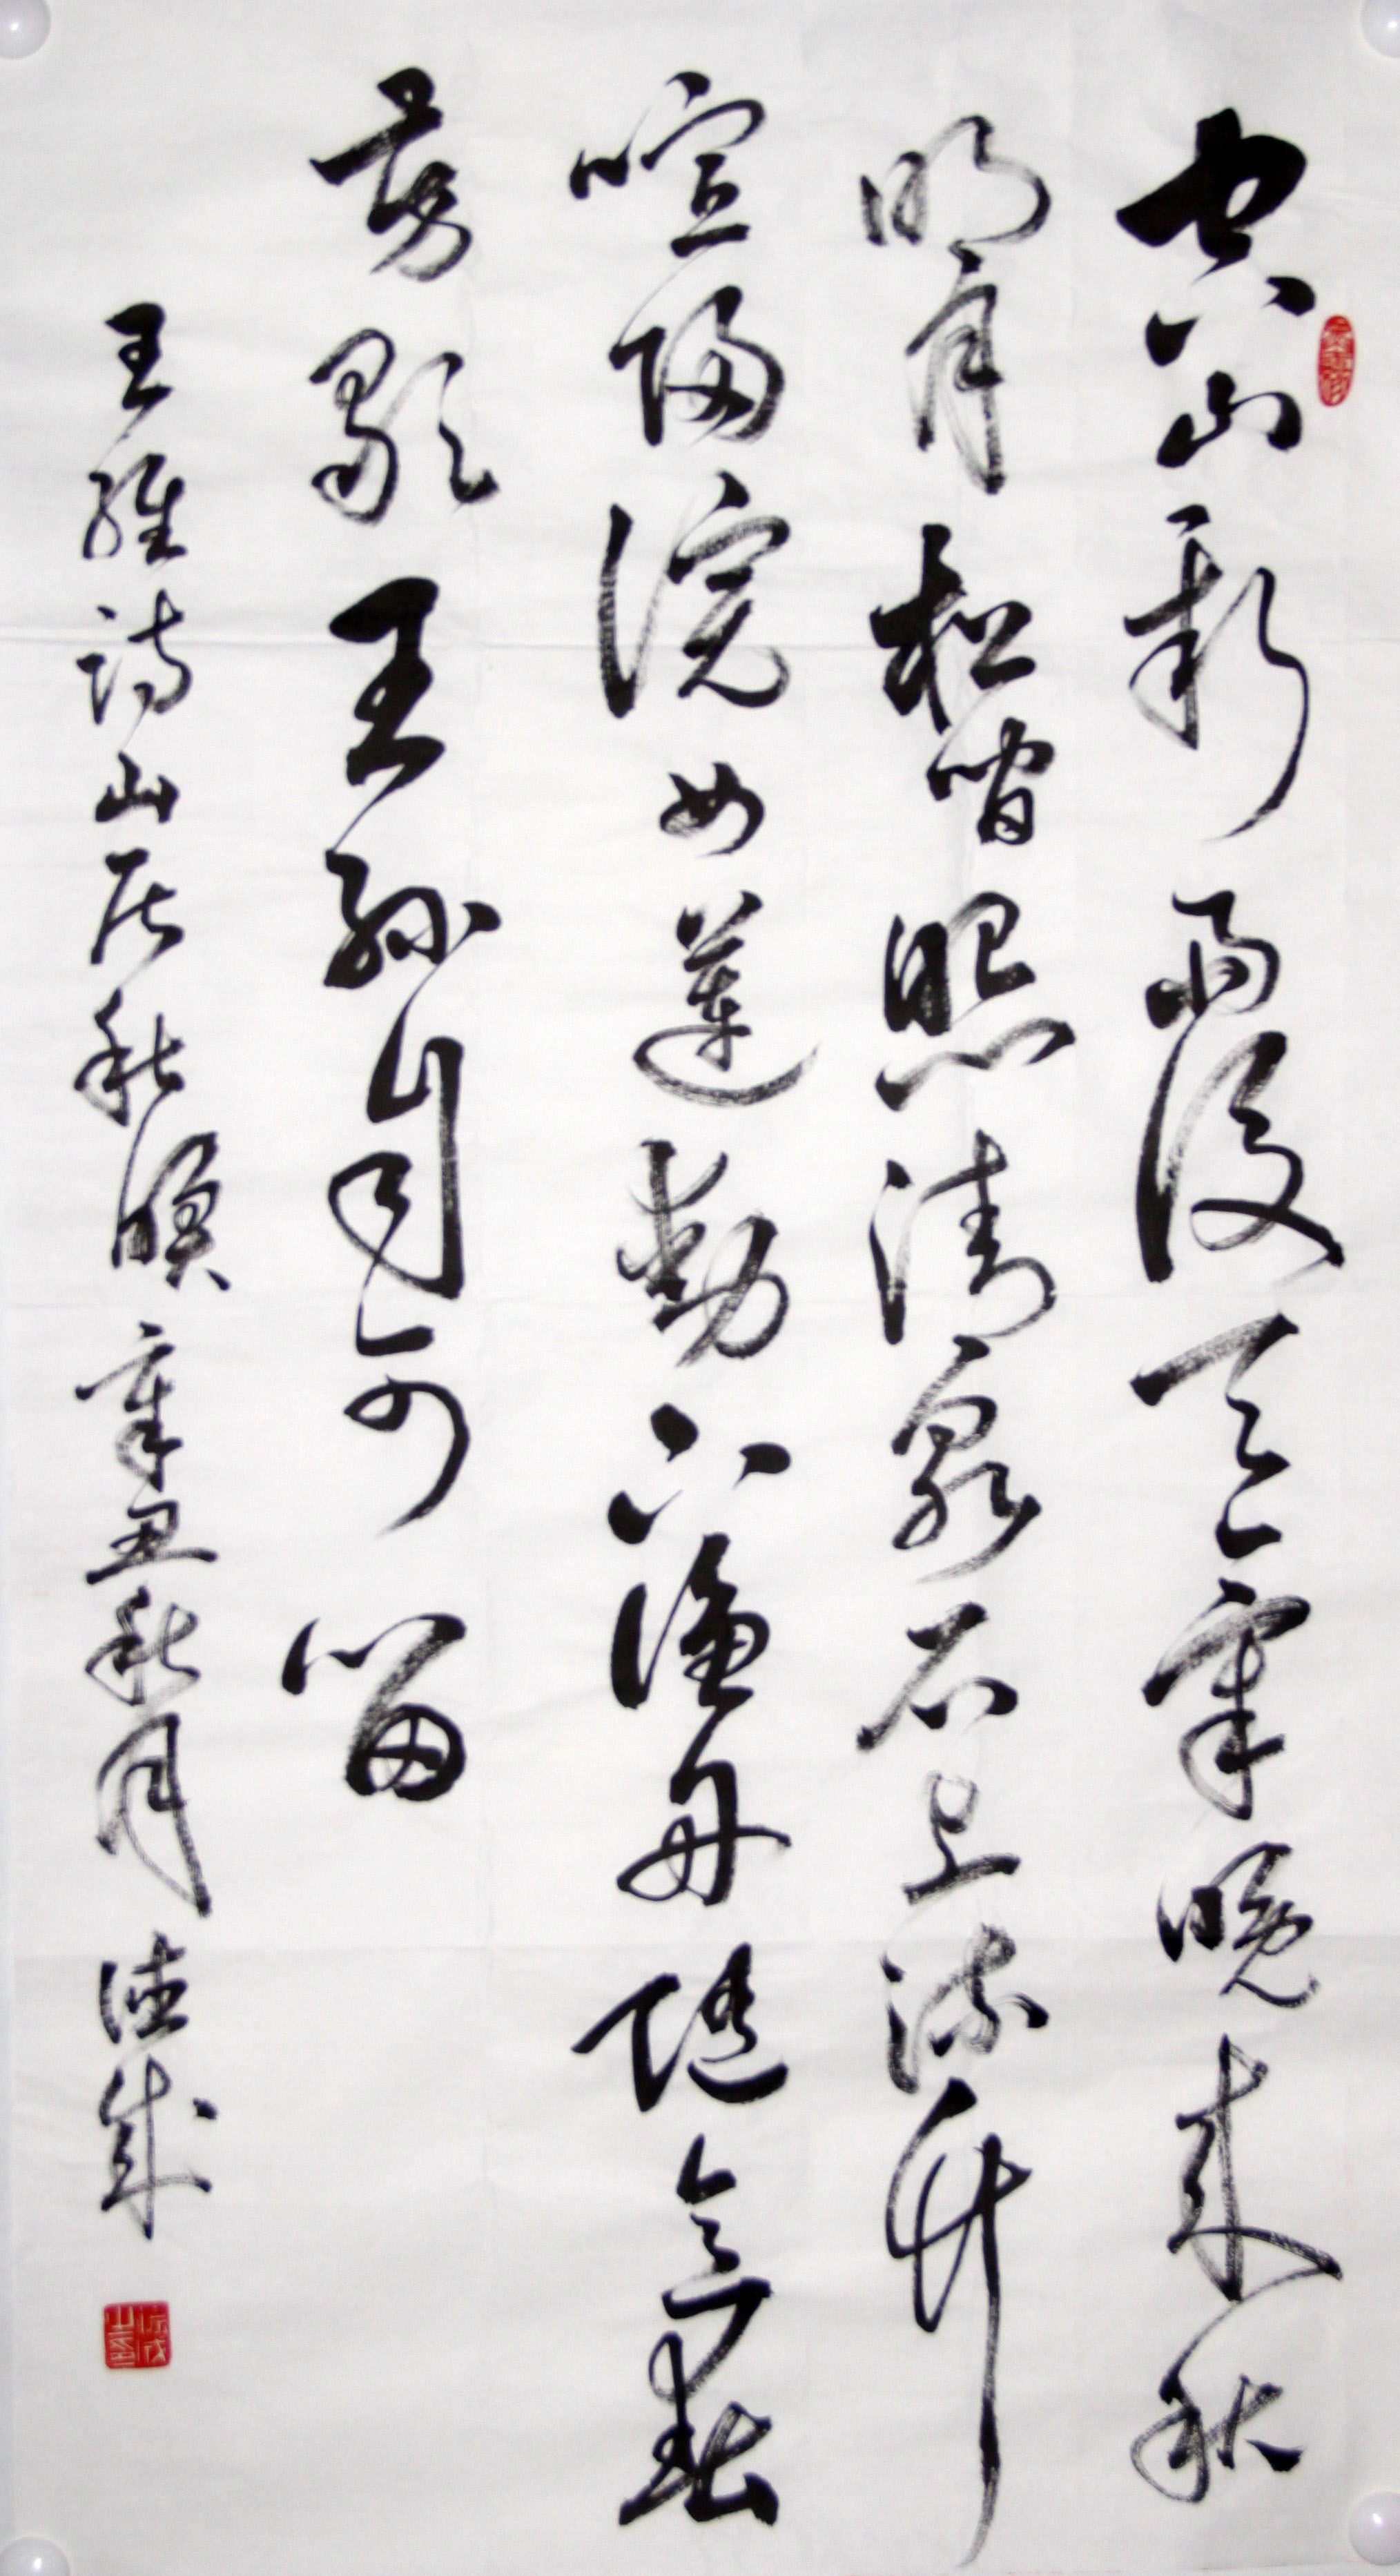 空山新雨後天氣晚來秋
明月松間照清泉石上流竹
喧歸浣女蓮動下漁舟隨意春
芳歇王孫自可留
王維詩山居秋暝 辛丑秋月 德成